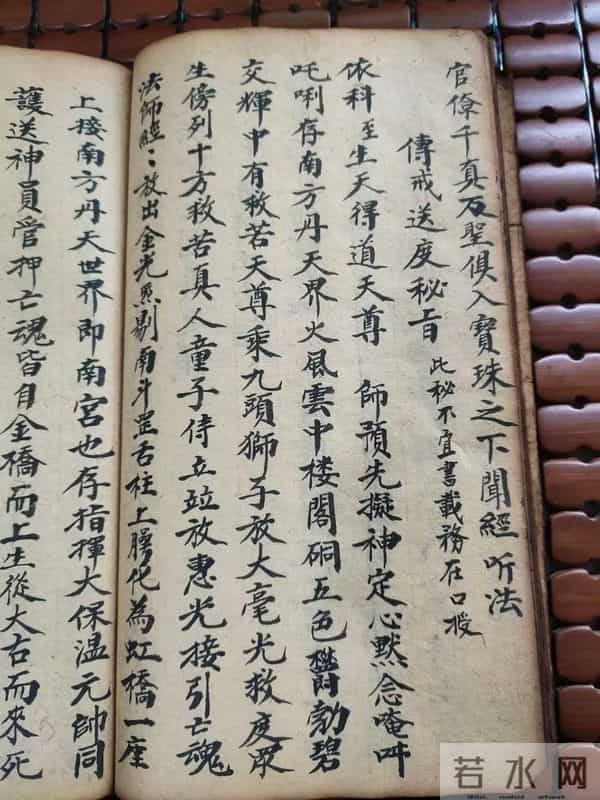 官僚千真万聖俱入寶珠之下聞經听法
傳戒送度秘旨 此秘不宜書載務在口授
依科至生天得道天尊 師預先擬神定心默念唵吽
吒唎存南方丹天界火風雲中楼閣硐五色欝勃碧
交輝中有救苦天尊乘九頭獅子放大毫光救度眾
生傍列十方救苦真人童子侍立竝放惠光接引亡魂
法師放出金光剔南斗罡舌柱上腭化為虹橋一座
上接南方丹天世界即南宮也存指揮大保温元帥同
護送神員管押亡魂皆自金橋而上生從大古而來死
若水网